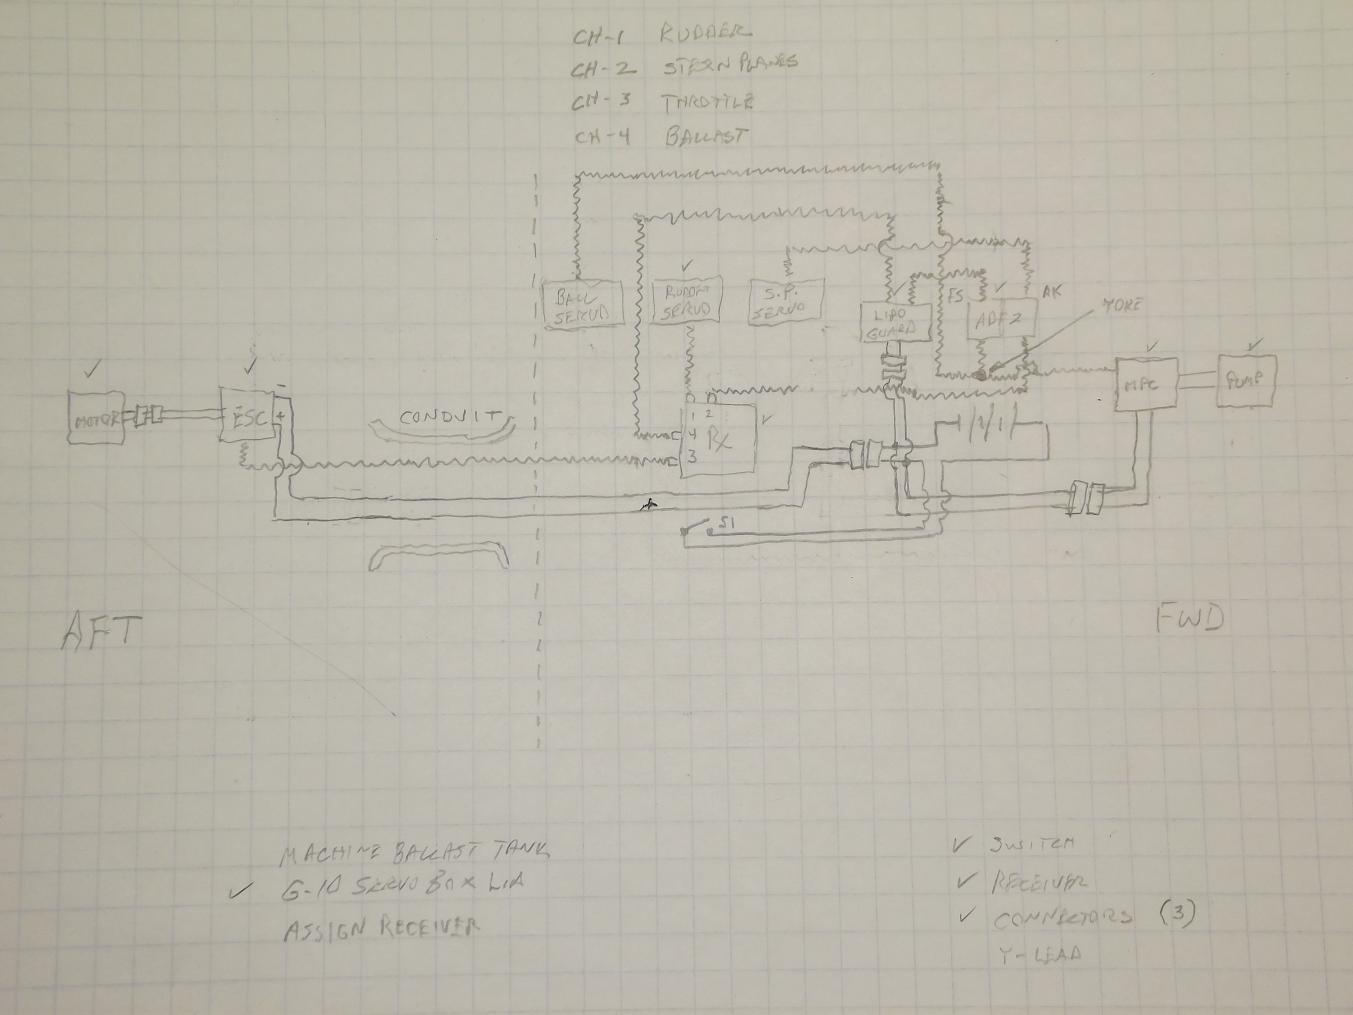 CH-1 RUDDER
CH-2 STERN PLANES
CH-3 THROTTLE
CH-4 BALLAST
BALL SERVO
RUDDER SERVO
S.P. SERVO
LIPO GUARD
FS
ADF2
AK
YOKE
MOTOR
ESC
-
+
CONDUIT
1 2
4 RX
3
MPC
PUMP
S1
AFT
FWD
MACHINE BALLAST TANK
✓ G-10 SERVO BOX LID
ASSIGN RECEIVER
✓ SWITCH
✓ RECEIVER
✓ CONNECTORS (3)
Y-LEAD